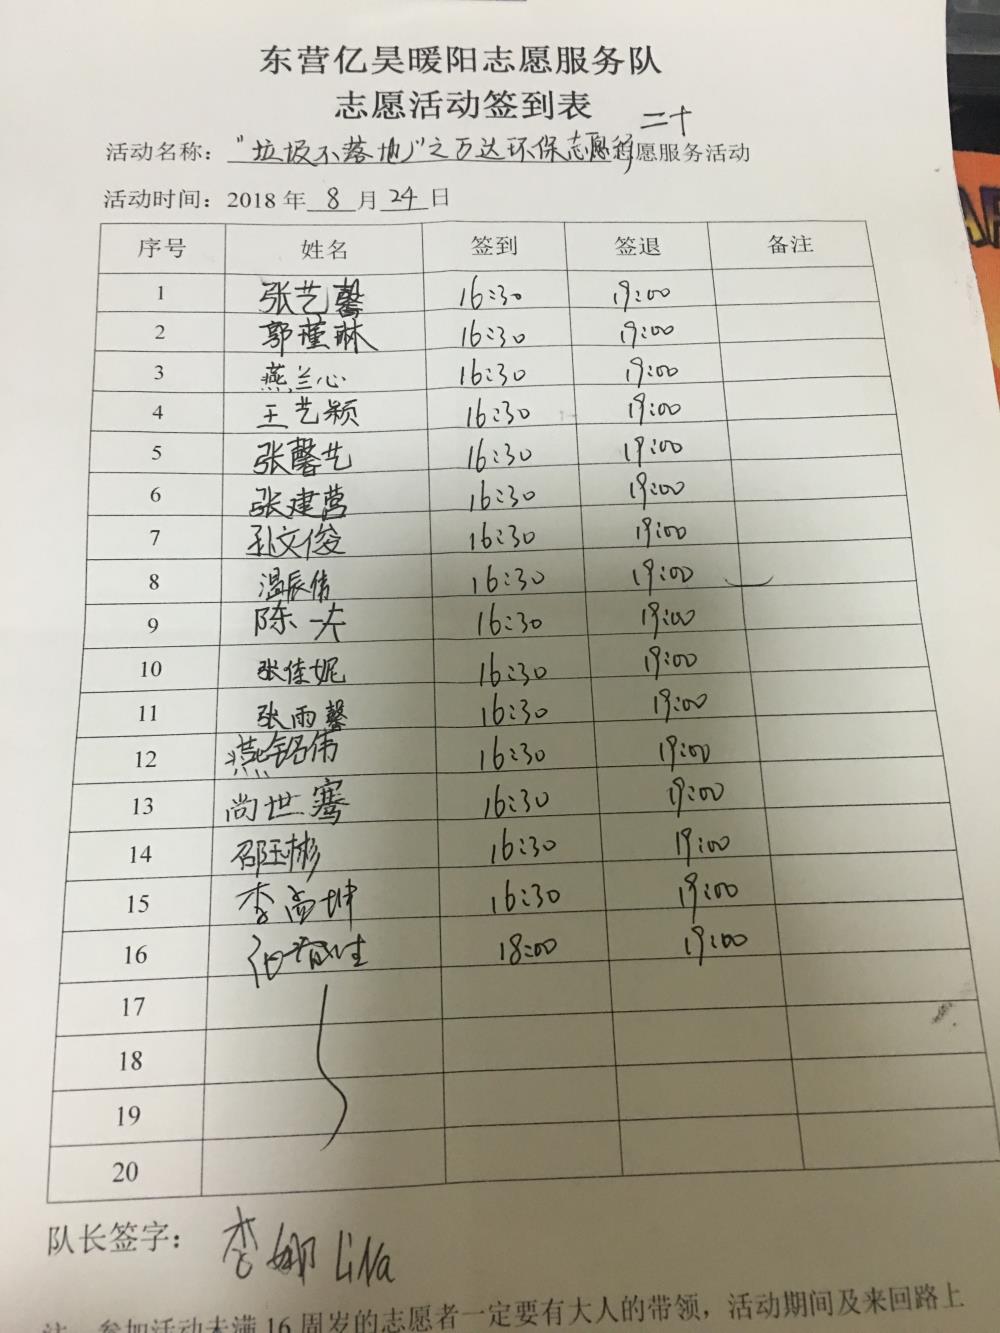 东营亿昊暖阳志愿服务队
志愿活动签到表
二十
活动名称："垃圾不落地"之万达环保志愿行愿服务活动
活动时间：2018年8月24日
序号 姓名 签到 签退 备注
1 张艺馨 16:30 19:00
2 郭瑾琳 16:30 19:00
3 燕兰心 16:30 19:00
4 王艺颖 16:30 19:00
5 张馨艺 16:30 19:00
6 张建营 16:30 19:00
7 孙文俊 16:30 19:00
8 温辰伟 16:30 19:00
9 陈一夫 16:30 19:00
10 张佳妮 16:30 19:00
11 张雨馨 16:30 19:00
12 燕铭伟 16:30 19:00
13 尚世骞 16:30 19:00
14 邵玉彬 16:30 19:00
15 李高坤 16:30 19:00
16 18:00 19:00
17
18
19
20
队长签字：李娜 LiNa
注：参加活动未满16周岁的志愿者一定要有大人的带领，活动期间及来回路上